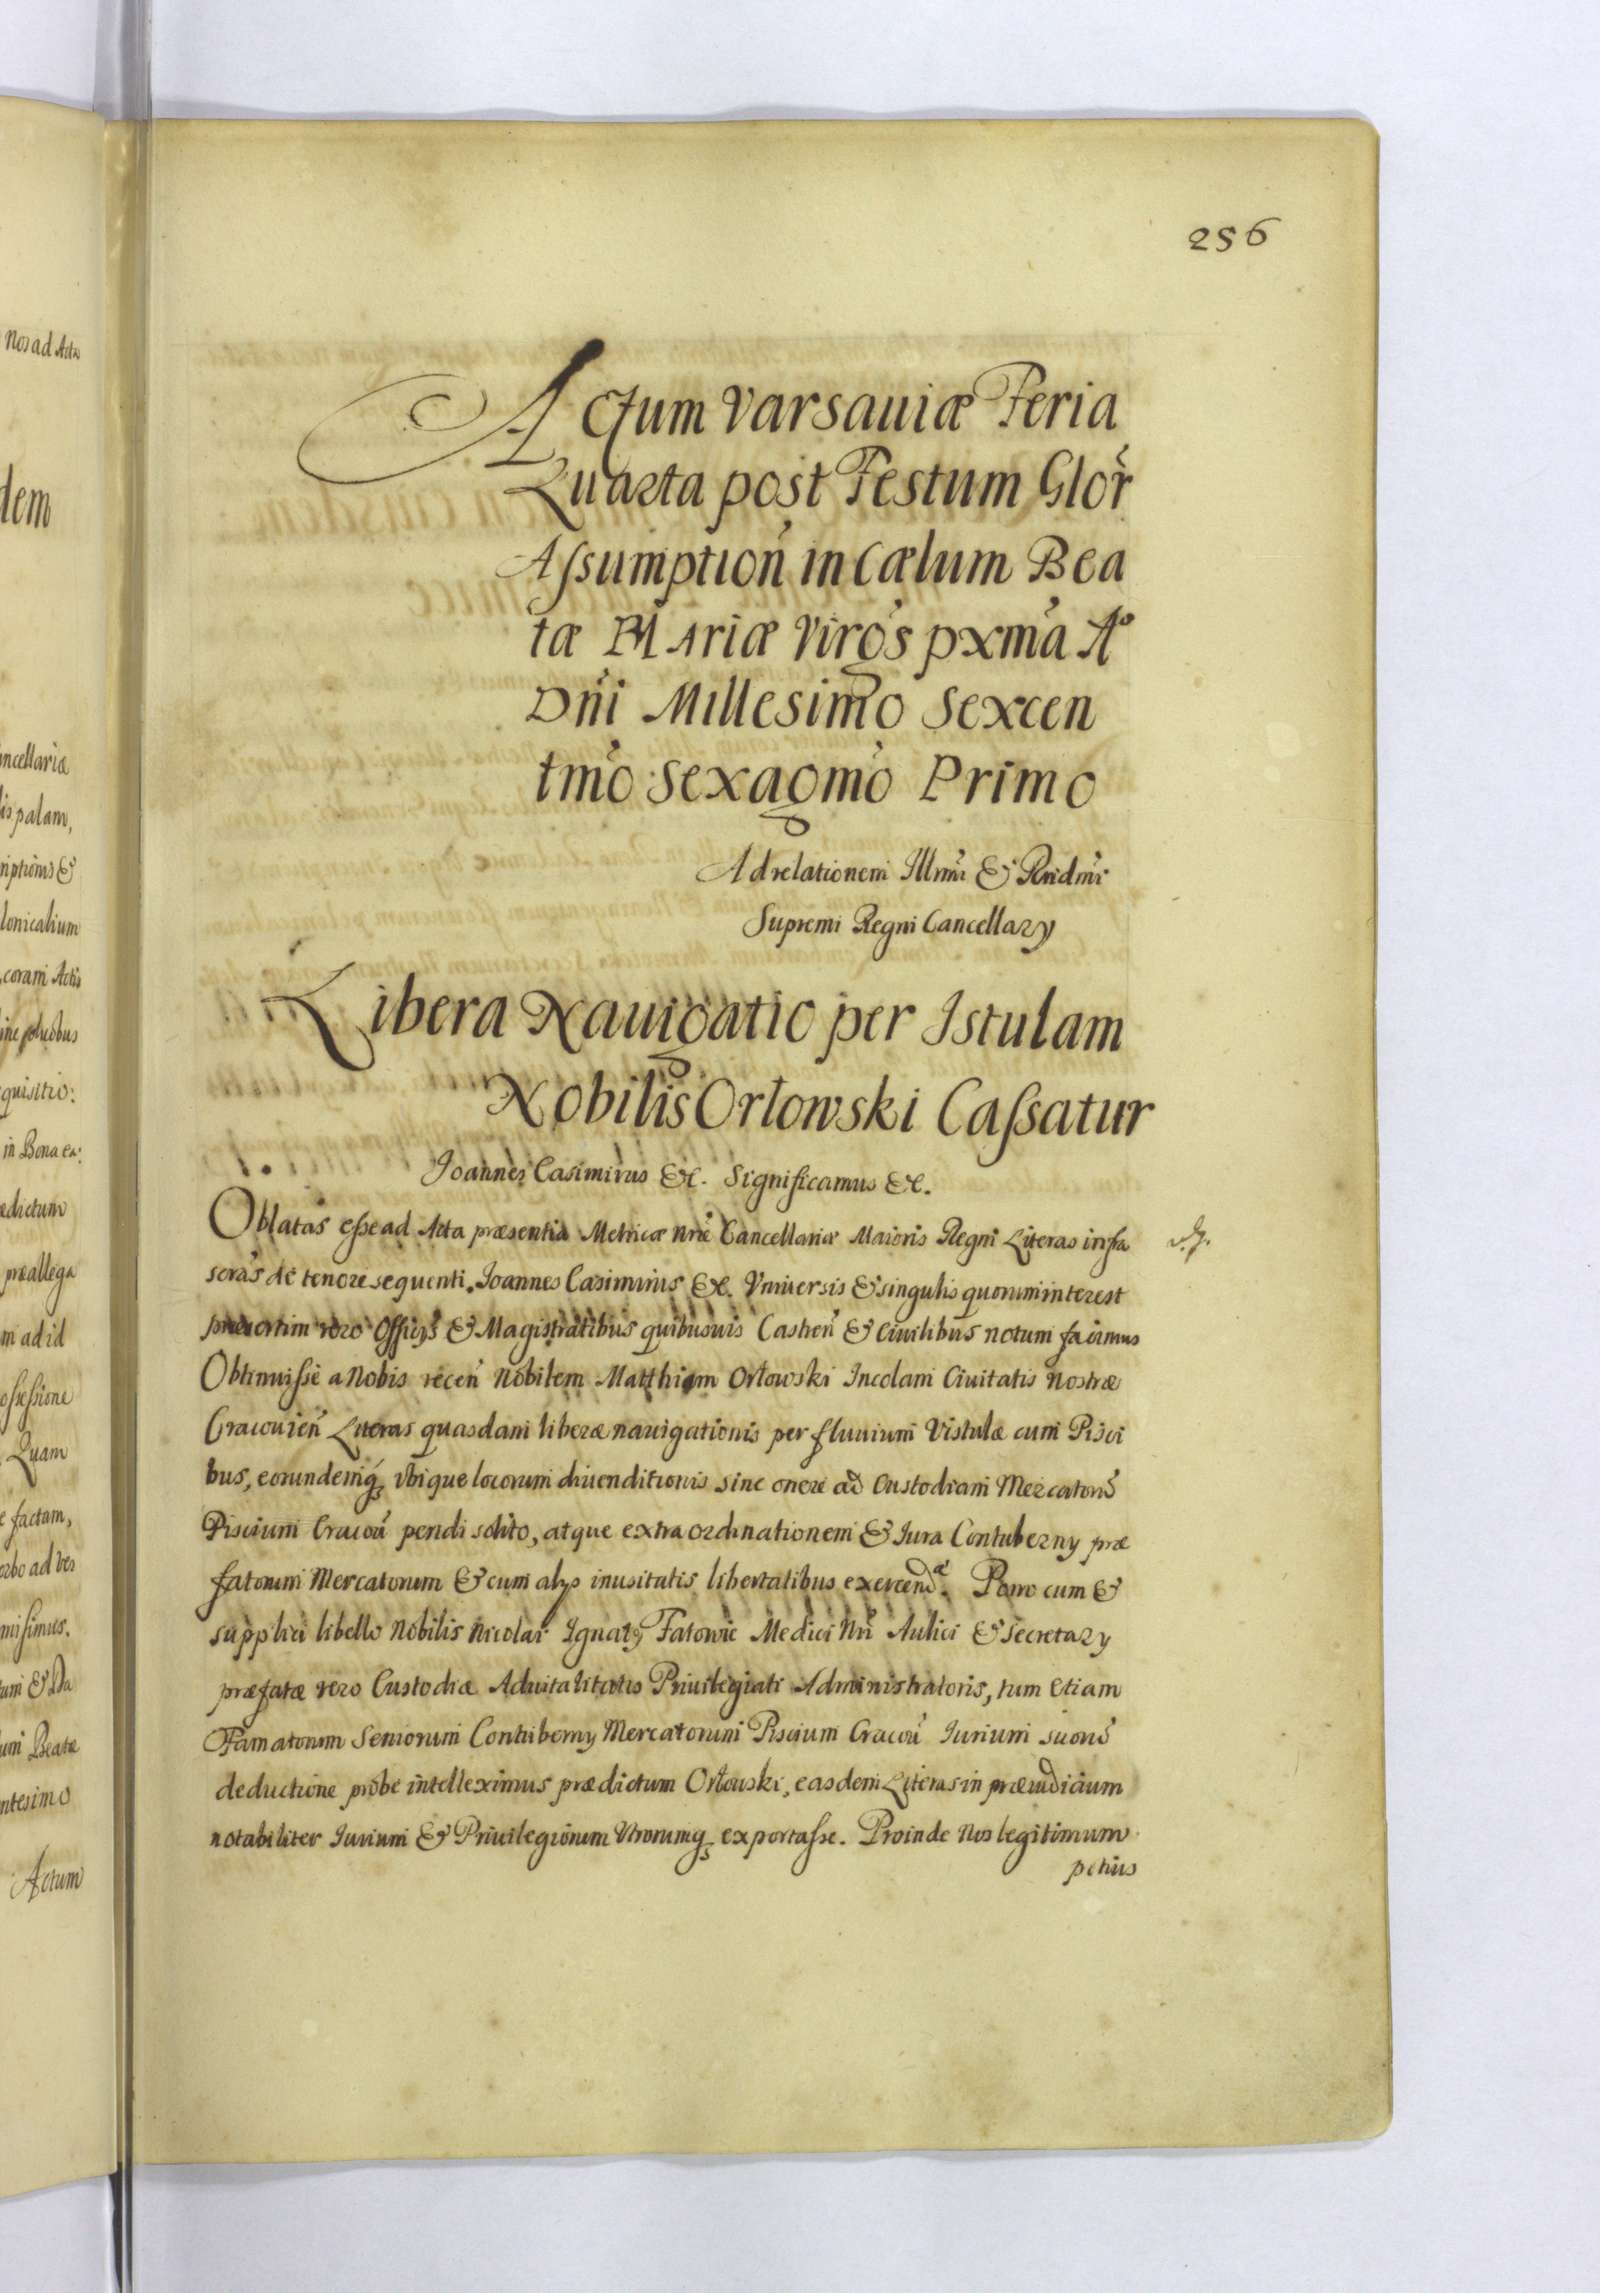 256
Actum Varsauiæ Feria
Quarta post Festum Glor̃
Aſsumption̄ in Cælum Bea
tæ MAriæ Virg̃s pxm̃a Aº
Dn̄i Millesimo Sexcen
tm̃o Sexagm̃o Primo
Ad relationem Illm̃i & Rndm̃i
Supremi Regni Cancellary
Libera Nauigatio per Istulam
Nobilis Orłowski Caſsatur
Joannes Casimirus &c. Significamus &c.
Oblatas eſse ad Acta præsentia Metricæ nr̃æ Cancellariæ Maioris Regni Literas infra
scr̃as de tenore sequenti. Joannes Casimirus &c. Vniuersis & singulis quorum interest
præsertim vero Officijs & Magistratibus quibusuis Castren̄ & Ciuilibus notum facimus
Obtinuiſse a Nobis recen̄ Nobilem Matthiam Orłowski Incolam Ciuitatis Nostræ
Cracouien̄ Literas quasdam liberæ nauigationis per fluuium Vistulæ cum Pisci
bus, eorundemq; vbique locorum diuenditionis sine onere ad Custodiam Mercator̃
Piscium Cracou̅ pendi solito, atque extra ordinationem & Iura Contuberny præ
fatorum Mercatorum & cum alys inusitatis libertatibus exercendæ. Porro cum &
supplici libello Nobilis Nicolai Ignaty Fatowic Medici Nr̃i Aulici & Secretary
præfatæ vero Custodiæ Aduitalitatis Priuilegiati Administratoris, tum Etiam
Famatorum Seniorum Contuberny Mercatorum Piscium Cracou̅ Iurium suor̃
deductione probe intelleximus prædictum Orłowski, easdem Literas in præiudicium
notabiliter Iurium & Priuilegiorum Vtrorumq; exportaſse. Proinde Nos legitimum
petius
Nos ad Acta
dem
ancellariæ
palam,
&
lonicalium
coram Actis
quisitio:
in Bona ea:
edictum
præallega
m ad id
oſseſsione
Quam
e factam,
orbo ad ver
misimus.
um & Da
um Beatæ
ntesimo
Actum